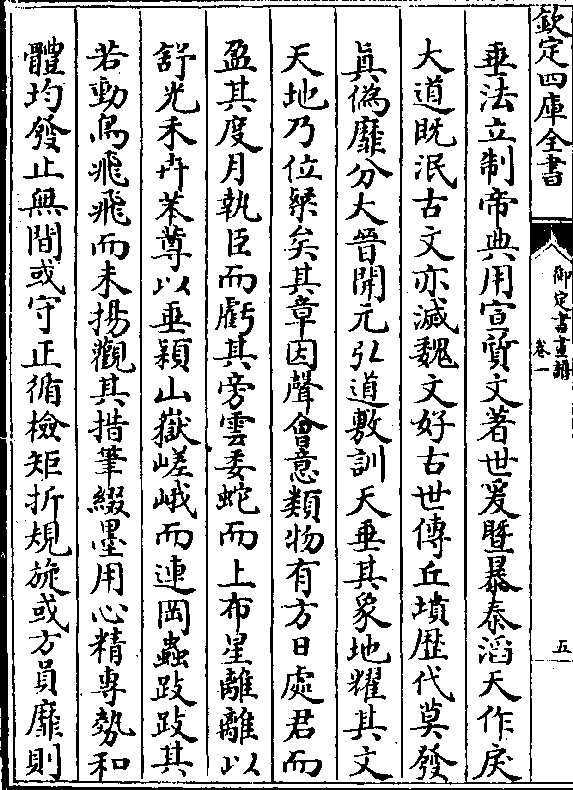 欽定四庫全書
御定書畫譜
卷一
五
垂法立制帝典用宣質文著世爰暨暴秦滔天作戾
大道既泯古文亦滅魏文好古世傳丘墳歴代莫發
眞偽靡分大晉開元弘道敷訓天垂其象地耀其文
天地乃位粲矣其章因聲會意類物有方日處君而
盈其度月執臣而虧其旁雲委蛇而上布星離離以
舒光禾卉苯䔿以垂穎山嶽嵯峨而連岡蟲跂跂其
若動鳥飛飛而未揚觀其措筆綴墨用心精專勢和
體均發止無間或守正循檢矩折規旋或方員靡則